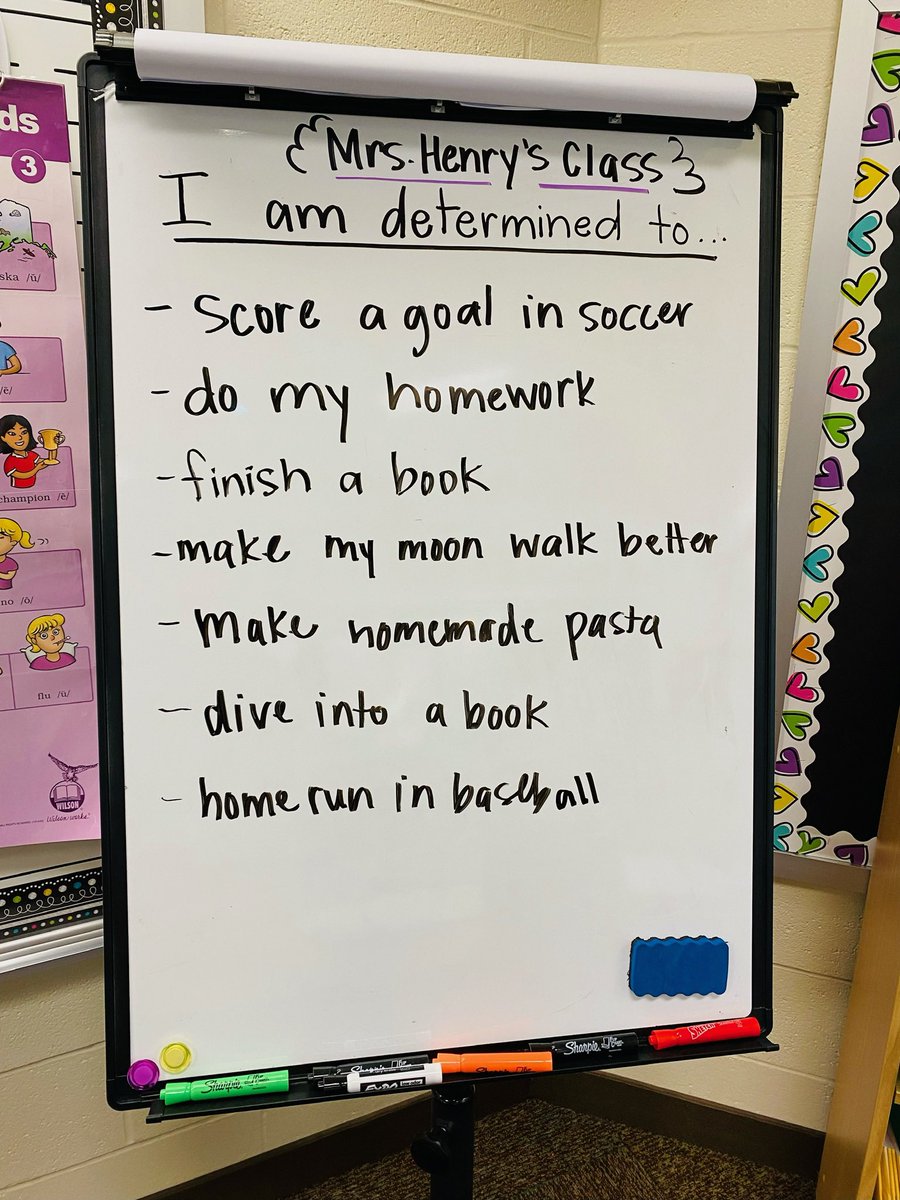 {Mrs. Henry's Class}
I am determined to...
- score a goal in soccer
- do my homework
- finish a book
- make my moon walk better
- make homemade pasta
- dive into a book
- home run in baseball
ds
3
ska /ŭ/
/ĕ/
champion /ĕ/
no /ō/
flu /ū/
WILSON
Wilson works
Sharpie
Sharpie
EXPO
Sharpie
Sharpie